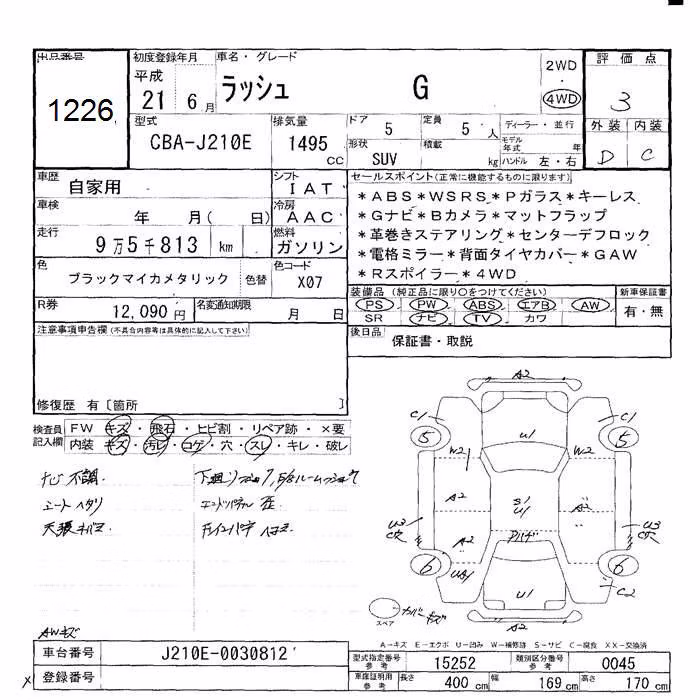 出品番号 初度登録年月 車名・グレード 評価点
1226 平成 21 6月 ラッシュ G 2WD 4WD 3
型式 排気量 ドア 定員 ディーラー・並行 外装 内装
CBA-J210E 1495 CC 5 5人 モデル年式 年 D C
形状 SUV 積載 kg ハンドル 左・右
車歴 自家用 シフト IAT セールスポイント(正常に機能するものに限ります)
車検 年 月( 日) 冷房 AAC
走行 9万5千813 km 燃料 ガソリン
色 ブラックマイカメタリック 色替 色コード X07
*ABS*WSRS*Pガラス*キーレス
*Gナビ*Bカメラ*マットフラップ
*革巻きステアリング*センターデフロック
*電格ミラー*背面タイヤカバー*GAW
*Rスポイラー*4WD
装備品 (純正品に限り○をつけてください) 新車保証書
PS PW ABS エアB AW 有・無
SR ナビ TV カワ
R券 12,090円 名変通知期限 月 日
後日品 保証書・取説
注意事項申告欄(不具合内容等は具体的に記入して下さい)
修復歴 有〔箇所 〕
検査員記入欄 FW キズ・飛石・ヒビ割・リペア跡・×要
内装 キズ・汚レ・コゲ・穴・スレ・キレ・破レ
ナビ不調.
シートヘタリ
天張キバミ
エンドパネル 歪
AWキズ
A2
C1 C1
5 U1 5
W2 W2
A2 S1 U1 A2
U3 C穴 A2 U3 C穴
6 6
U1 C2
A2
スペア カバーキズ
A-キズ E-エクボ U-凹み W-補修跡 S-サビ C-腐食 XX-交換済
車台番号 J210E-0030812
登録番号
型式指定番号 参考 15252 類別区分番号 参考 0045
車庫証明用 参考 長さ 400 cm 幅 169 cm 高さ 170 cm